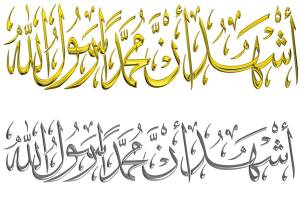 أشهد أن محمدا رسول الله
أشهد أن محمدا رسول الله